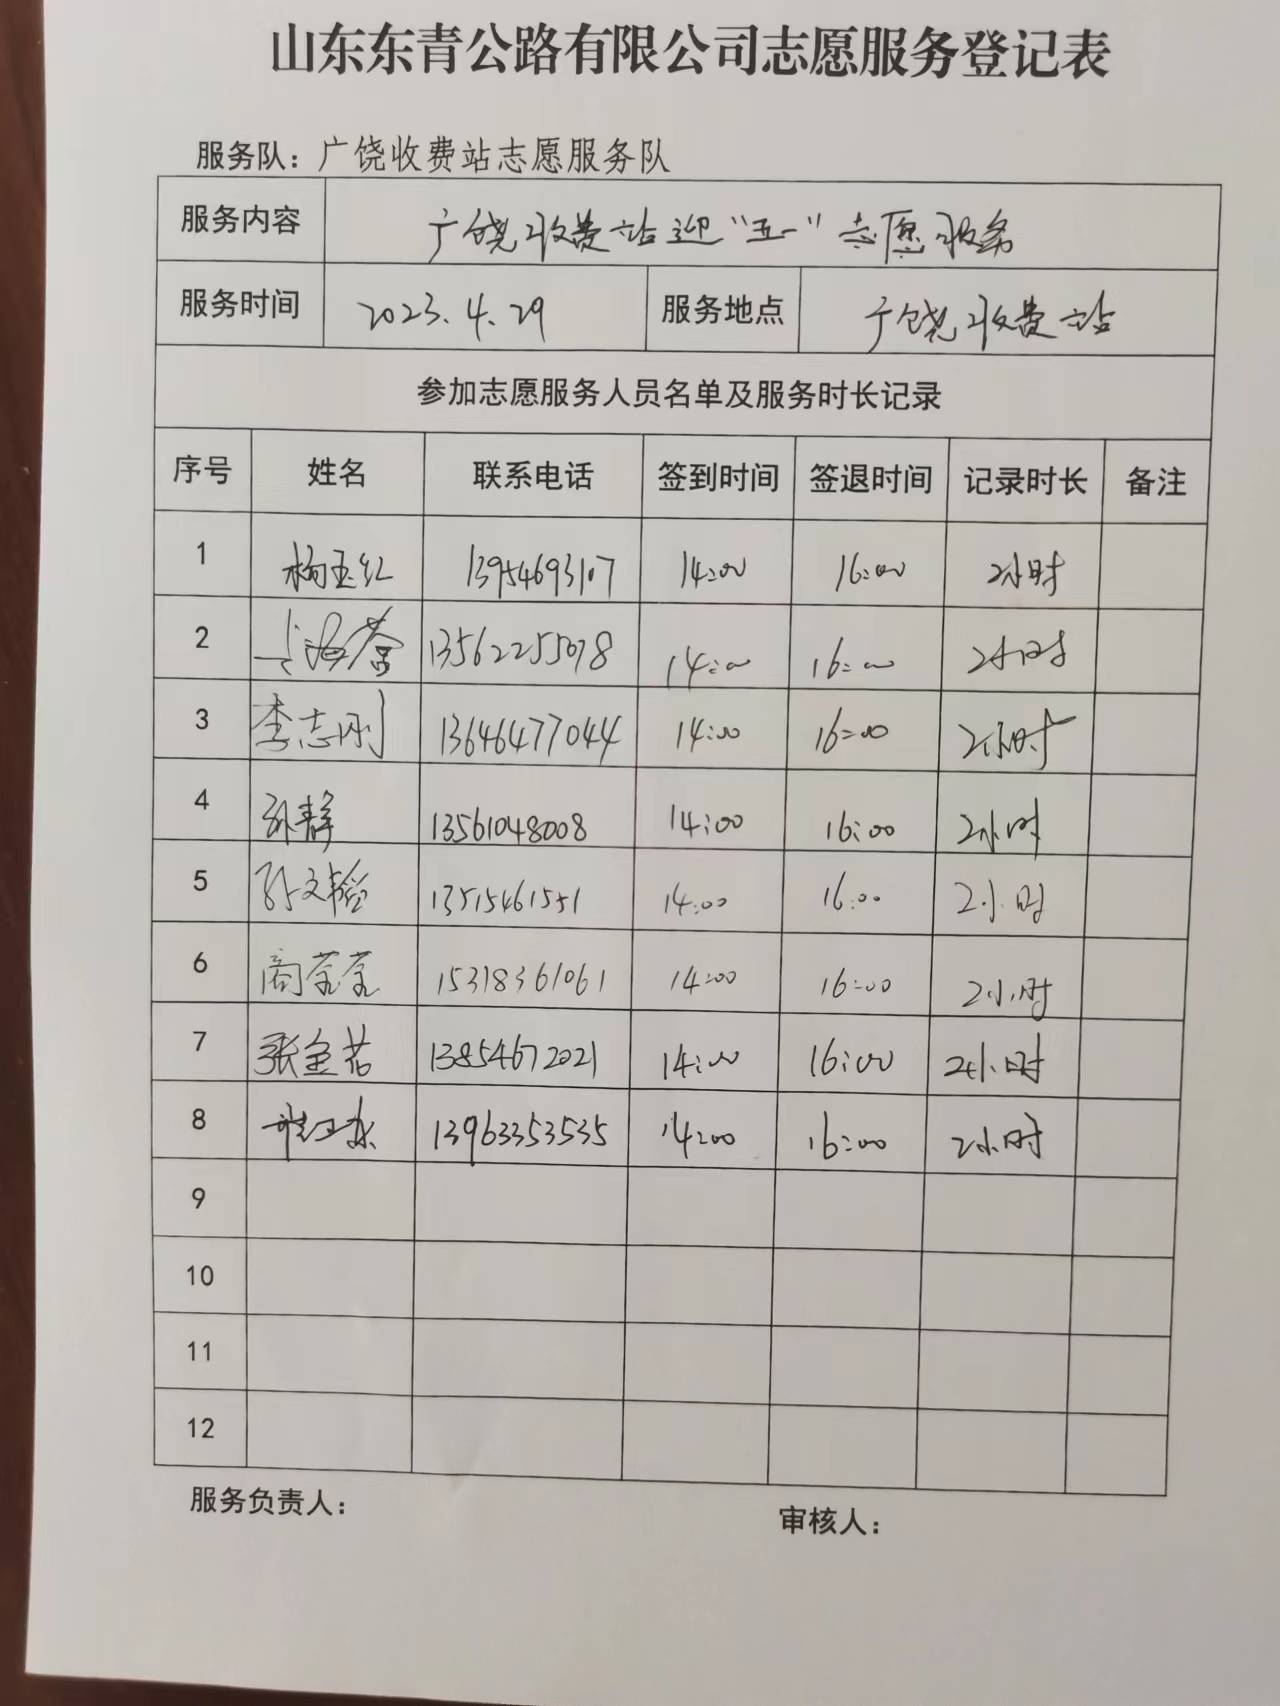 山东东青公路有限公司志愿服务登记表
服务队：广饶收费站志愿服务队
服务内容 广饶收费站迎“五一”志愿服务
服务时间 2023.4.29 服务地点 广饶收费站
参加志愿服务人员名单及服务时长记录
序号 姓名 联系电话 签到时间 签退时间 记录时长 备注
1 杨玉红 13954693107 14:00 16:00 2小时
2 13562255078 14:00 16:00 2小时
3 李志刚 13646477044 14:00 16:00 2小时
4 孙静 13561048008 14:00 16:00 2小时
5 孙文韬 13515461551 14:00 16:00 2小时
6 商莹莹 15318361061 14:00 16:00 2小时
7 张金若 13854672021 14:00 16:00 2小时
8 13963353535 14:00 16:00 2小时
9
10
11
12
服务负责人： 审核人：